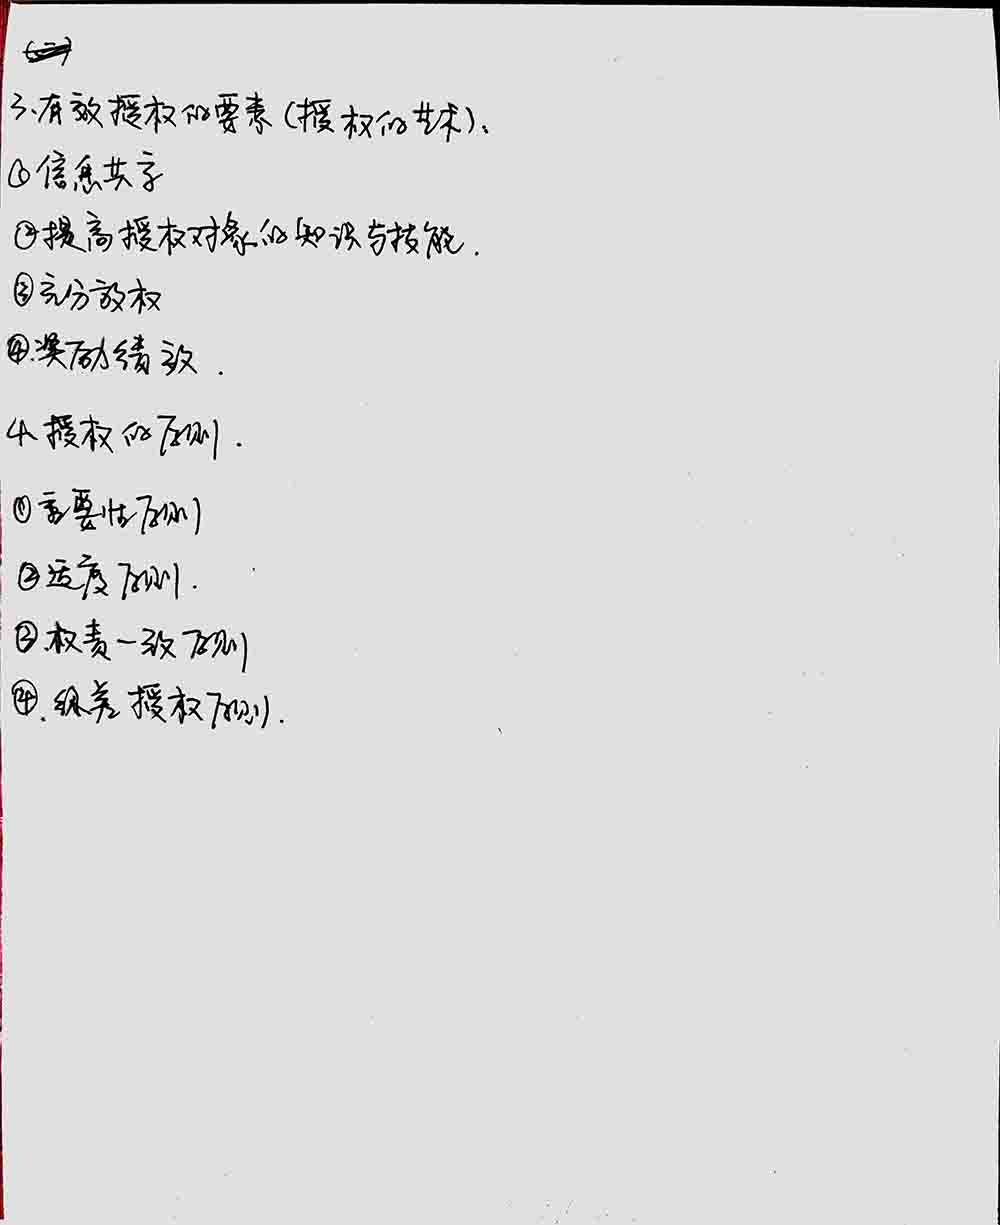 3、有效授权的要素(授权的艺术):
①信息共享
②提高授权对象的知识与技能.
③充分放权
④.奖励绩效.
4、授权的原则.
①重要性原则
②适度原则.
③.权责一致原则
④.级差授权原则.